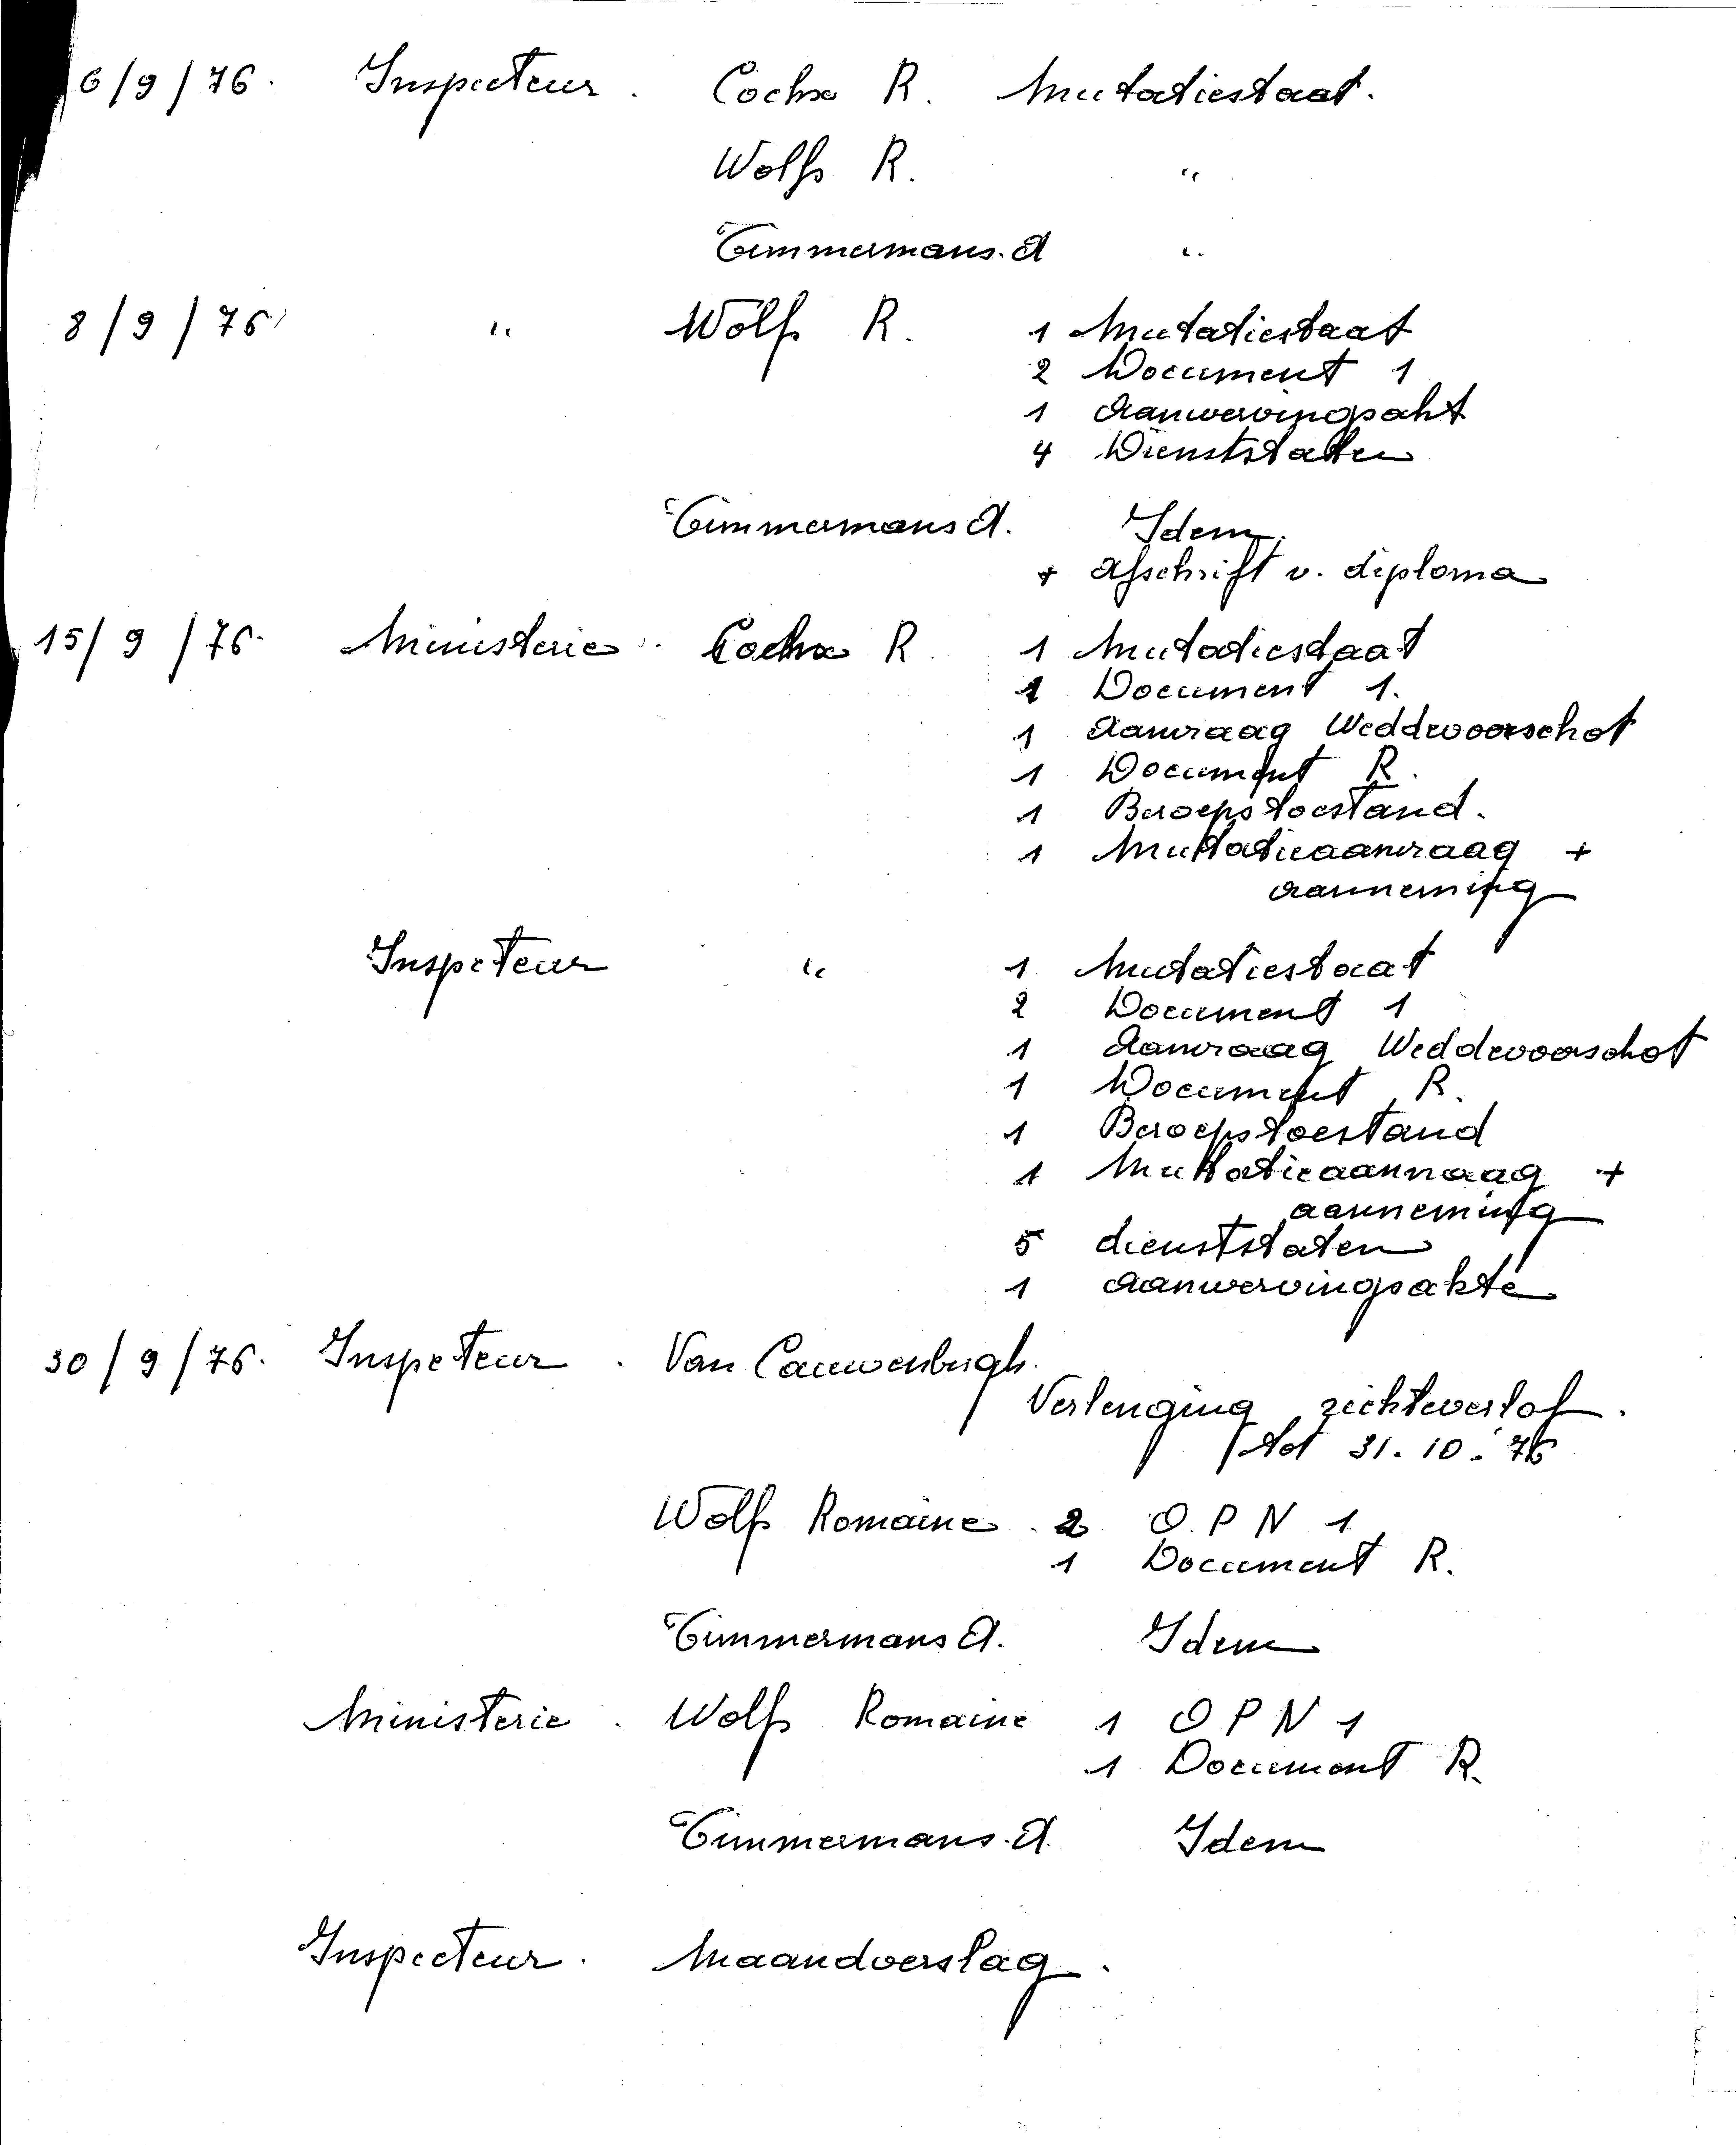 6/9/76. Inspecteur. Cochx R. Mutatiestaat.
Wolfs R. "
Timmermans. A "
8/9/76 " Wolfs R. 1 Mutatiestaat
2 Document 1
1 Aanwervingsakt
4 Dienststaten
Timmermans A. Idem
+ afschrift v. diploma
15/9/76. Ministerie. Cochx R 1 Mutatiestaat
1 Document 1.
1 Aanvraag Weddevoorschot
1 Document R.
1 Beroepstoestand.
1 Mutatieaanvraag +
aanneming
Inspecteur " 1 Mutatiestaat
2 Document 1
1 Aanvraag Weddevoorschot
1 Document R.
1 Beroepstoestand
1 Mutatieaanvraag +
aanneming
5 dienststaten
1 Aanwervingsakte
30/9/76. Inspecteur. Van Cauwenbergh.
Verlenging ziekteverlof.
tot 31.10.76
Wolfs Romaine. 2 O.P N 1
1 Document R.
Timmermans A. Idem
Ministerie. Wolfs Romaine 1 O P N 1
1 Document R.
Timmermans. A. Idem
Inspecteur. Maandverslag.